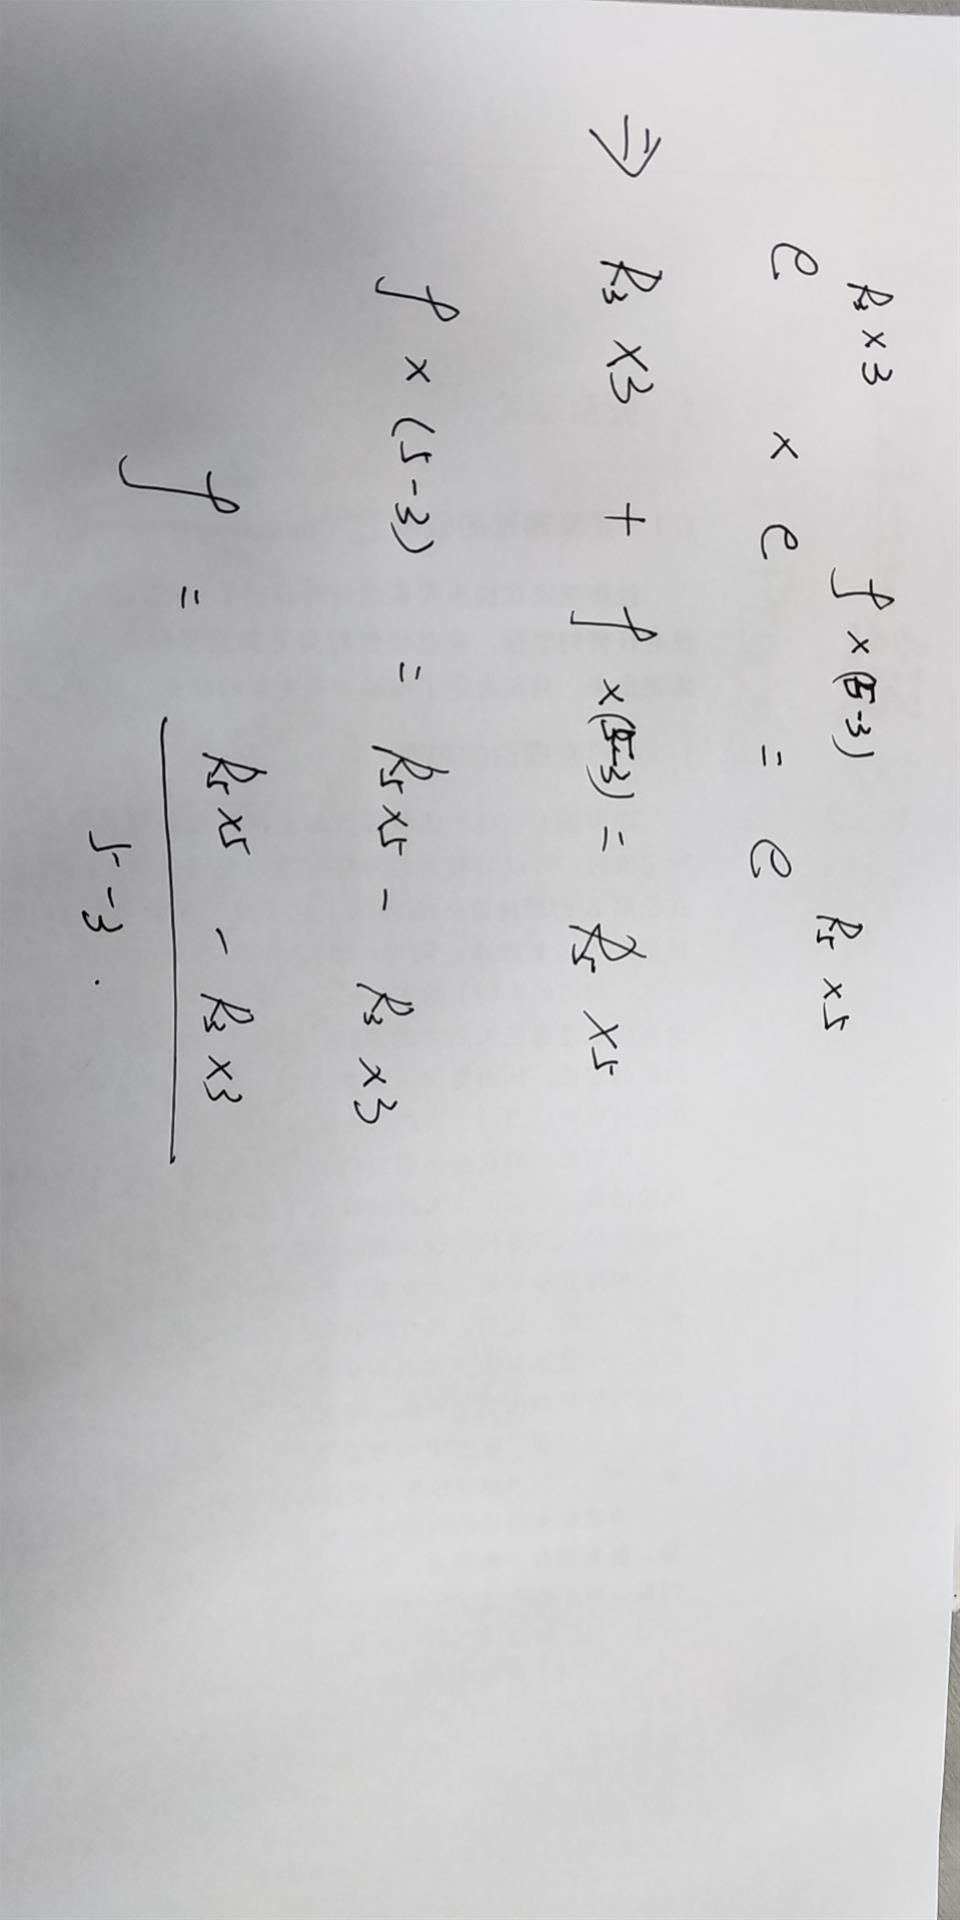 e^{R₃×3} × e^{f×(5-3)} = e^{R₅×5}
⇒ R₃×3 + f×(5-3) = R₅×5
f×(5-3) = R₅×5 - R₃×3
f = \frac{R₅×5 - R₃×3}{5-3}.